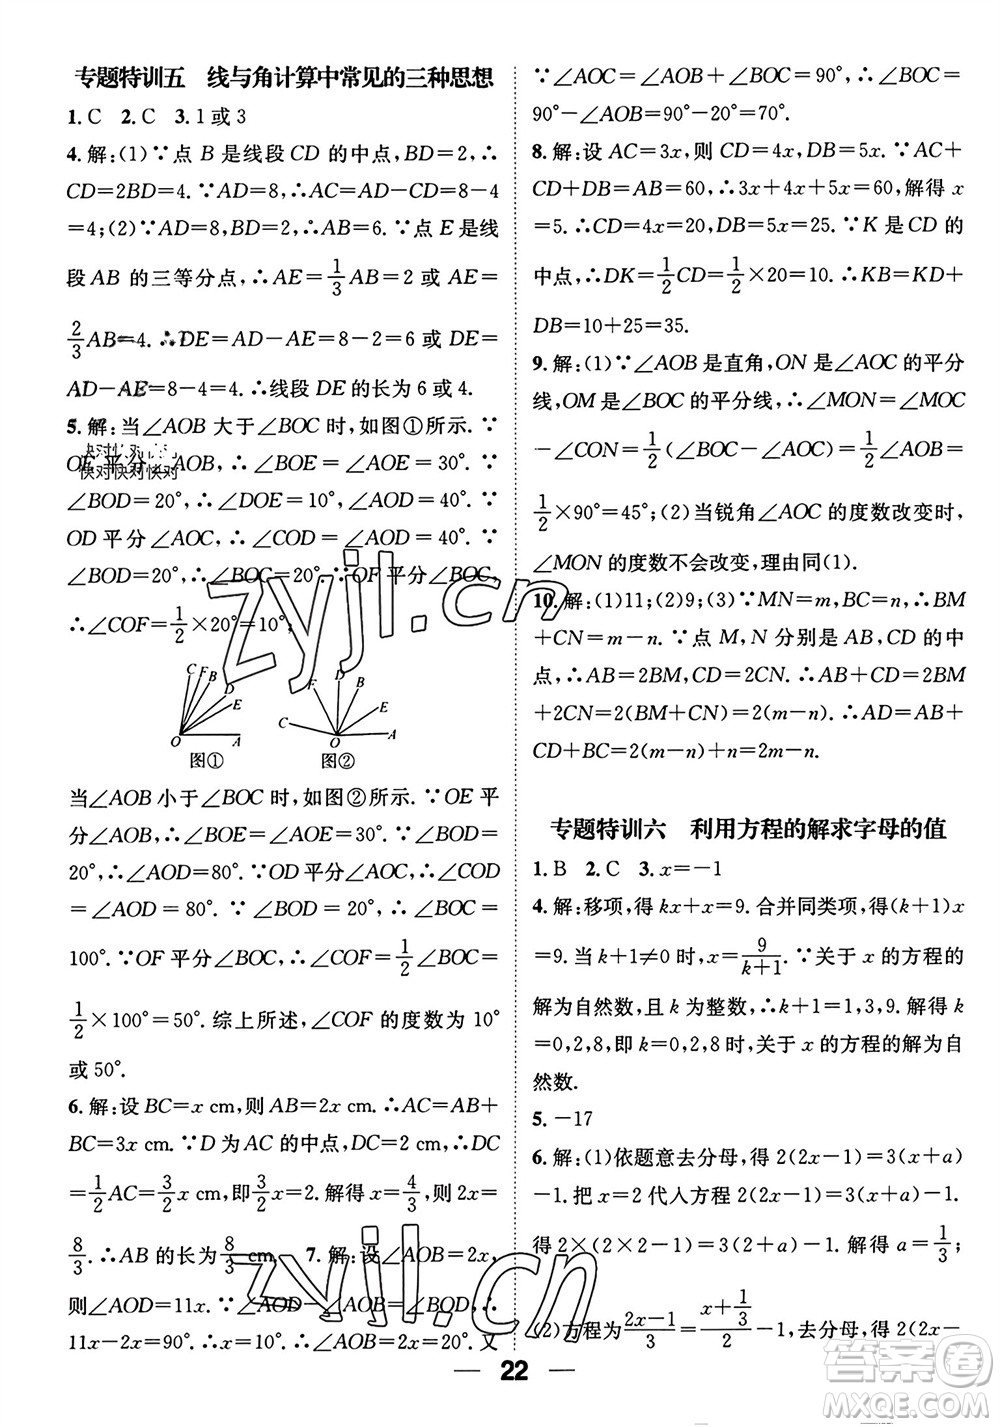 专题特训五 线与角计算中常见的三种思想
1. C 2. C 3. 1 或 3
4. 解:(1)∵点 B 是线段 CD 的中点,BD=2,∴
CD=2BD=4. ∵AD=8,∴AC=AD-CD=8-4
=4;(2)∵AD=8,BD=2,∴AB=6. ∵点 E 是线
段 AB 的三等分点,∴AE=1/3AB=2 或 AE=
2/3AB=4. ∴DE=AD-AE=8-2=6 或 DE=
AD-AE=8-4=4. ∴线段 DE 的长为 6 或 4.
5. 解:当∠AOB 大于∠BOC 时,如图①所示. ∵
OE 平分∠AOB,∴∠BOE=∠AOE=30°. ∵
∠BOD=20°,∴∠DOE=10°,∴∠AOD=40°. ∵
OD 平分∠AOC,∴∠COD=∠AOD=40°. ∵
∠BOD=20°,∴∠BOC=20°. ∵OF 平分∠BOC,
∴∠COF=1/2×20°=10°;
C F B D E O A
图①
F D B E C O A
图②
当∠AOB 小于∠BOC 时,如图②所示. ∵OE 平
分∠AOB,∴∠BOE=∠AOE=30°. ∵∠BOD
=20°,∴∠AOD=80°. ∵OD 平分∠AOC,∴∠COD
=∠AOD = 80°. ∵ ∠BOD = 20°,∴ ∠BOC =
100°. ∵OF 平分∠BOC,∴∠COF=1/2∠BOC=
1/2×100°=50°. 综上所述,∠COF 的度数为 10°
或 50°.
6. 解:设 BC=x cm,则 AB=2x cm. ∴AC=AB+
BC=3x cm. ∵D 为 AC 的中点,DC=2 cm,∴DC
=1/2AC=3/2x cm,即3/2x=2. 解得 x=4/3,则 2x=
8/3. ∴AB 的长为8/3 cm. 7. 解:设∠AOB=2x,
则∠AOD=11x. ∵∠AOD-∠AOB=∠BOD,∴
11x-2x=90°. ∴x=10°. ∴∠AOB=2x=20°. 又
∵∠AOC=∠AOB+∠BOC=90°,∴∠BOC=
90°-∠AOB=90°-20°=70°.
8. 解:设 AC=3x,则 CD=4x,DB=5x. ∵AC+
CD+DB=AB=60,∴3x+4x+5x=60,解得 x
=5. ∴CD=4x=20,DB=5x=25. ∵K 是 CD 的
中点,∴DK=1/2CD=1/2×20=10. ∴KB=KD+
DB=10+25=35.
9. 解:(1)∵∠AOB 是直角,ON 是∠AOC 的平分
线,OM 是∠BOC 的平分线,∴∠MON=∠MOC
-∠CON=1/2∠BOC-1/2∠AOC=1/2∠AOB=
1/2×90°=45°;(2)当锐角∠AOC 的度数改变时,
∠MON 的度数不会改变,理由同(1).
10. 解:(1)11;(2)9;(3)∵MN=m,BC=n,∴BM
+CN=m-n. ∵点 M,N 分别是 AB,CD 的中
点,∴AB=2BM,CD=2CN. ∴AB+CD=2BM
+2CN=2(BM+CN)=2(m-n). ∴AD=AB+
CD+BC=2(m-n)+n=2m-n.
专题特训六 利用方程的解求字母的值
1. B 2. C 3. x=-1
4. 解:移项,得 kx+x=9. 合并同类项,得(k+1)x
=9. 当 k+1≠0 时,x=9/(k+1). ∵关于 x 的方程的
解为自然数,且 k 为整数,∴k+1=1,3,9. 解得 k
=0,2,8,即 k=0,2,8 时,关于 x 的方程的解为自
然数.
5. -17
6. 解:(1)依题意去分母,得 2(2x-1)=3(x+a)
-1. 把 x=2 代入方程 2(2x-1)=3(x+a)-1.
得 2×(2×2-1)=3(2+a)-1. 解得 a=1/3;
(2)方程为(2x-1)/3=(x+1/3)/2-1,去分母,得 2(2x-
22
快对快对快对
zyjl.cn
zyjl.cn
答案圈
MXQE.COM